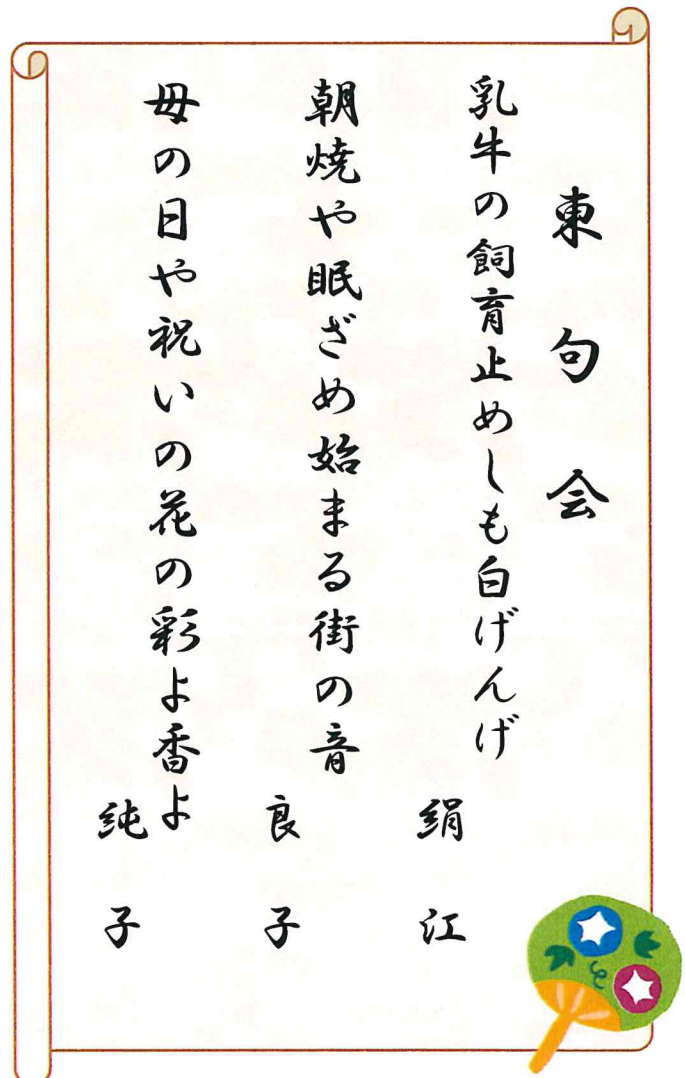 東句会
乳牛の飼育止めしも白げんげ
絹江
朝焼や眠ざめ始まる街の音
良子
母の日や祝いの花の彩よ香よ
純子